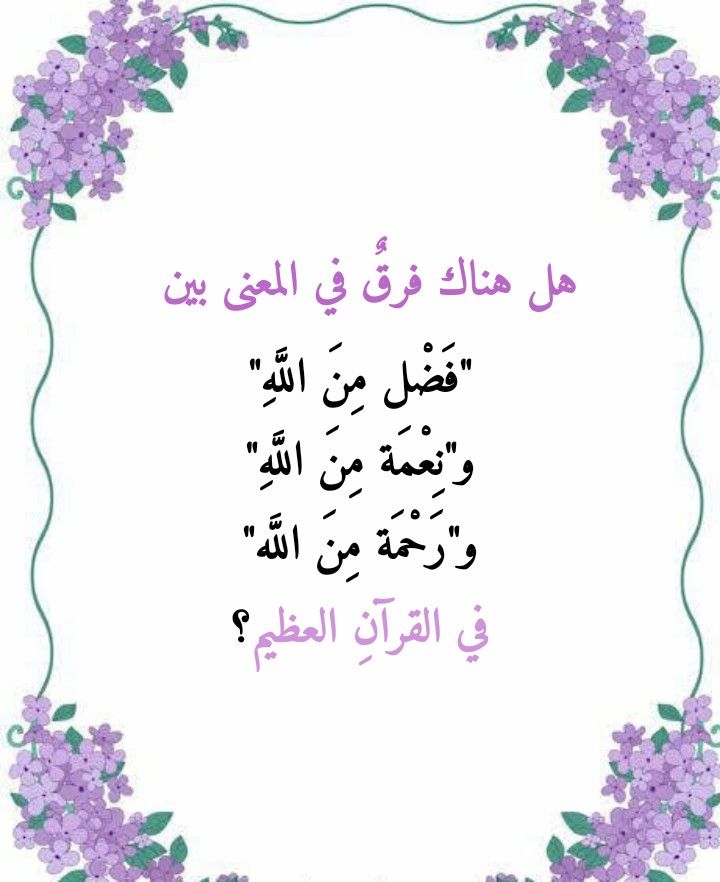 هل هناك فرقٌ في المعنى بين
"فَضْل مِنَ اللَّهِ"
و"نِعْمَة مِنَ اللَّهِ"
و"رَحْمَة مِنَ اللَّه"
في القرآنِ العظيم؟